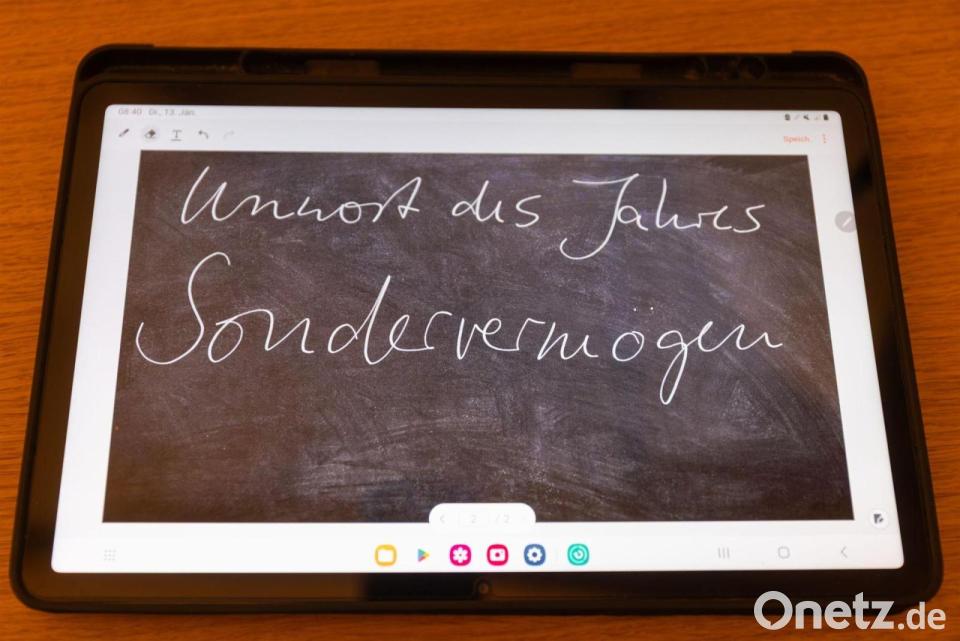 08:40 Di., 13. Jan.
T
Speich.
Unwort des Jahres
Sondervermögen
2 / 2
Onetz.de